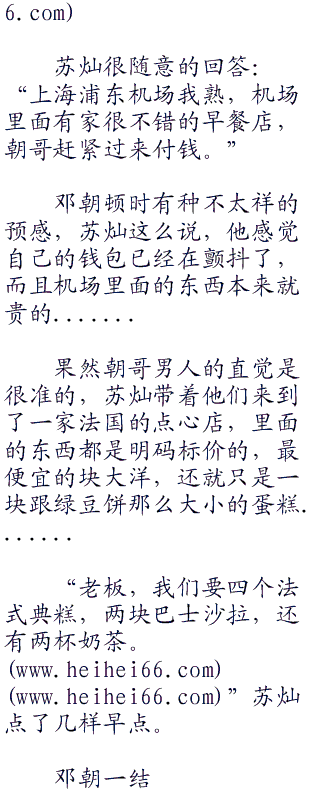 6.com)
苏灿很随意的回答：
“上海浦东机场我熟，机场
里面有家很不错的早餐店，
朝哥赶紧过来付钱。”
邓朝顷时有种不太祥的
预感，苏灿这么说，他感觉
自己的钱包已经在颤抖了，
而且机场里面的东西本来就
贵的.......
果然朝哥男人的直觉是
很准的，苏灿带着他们来到
了一家法国的点心店，里面
的东西都是明码标价的，最
便宜的块大洋，还就只是一
块跟绿豆饼那么大小的蛋糕.
......
“老板，我们要四个法
式典糕，两块巴士沙拉，还
有两杯奶茶。
(www.heihei66.com)
(www.heihei66.com)”苏灿
点了几样早点。
邓朝一结